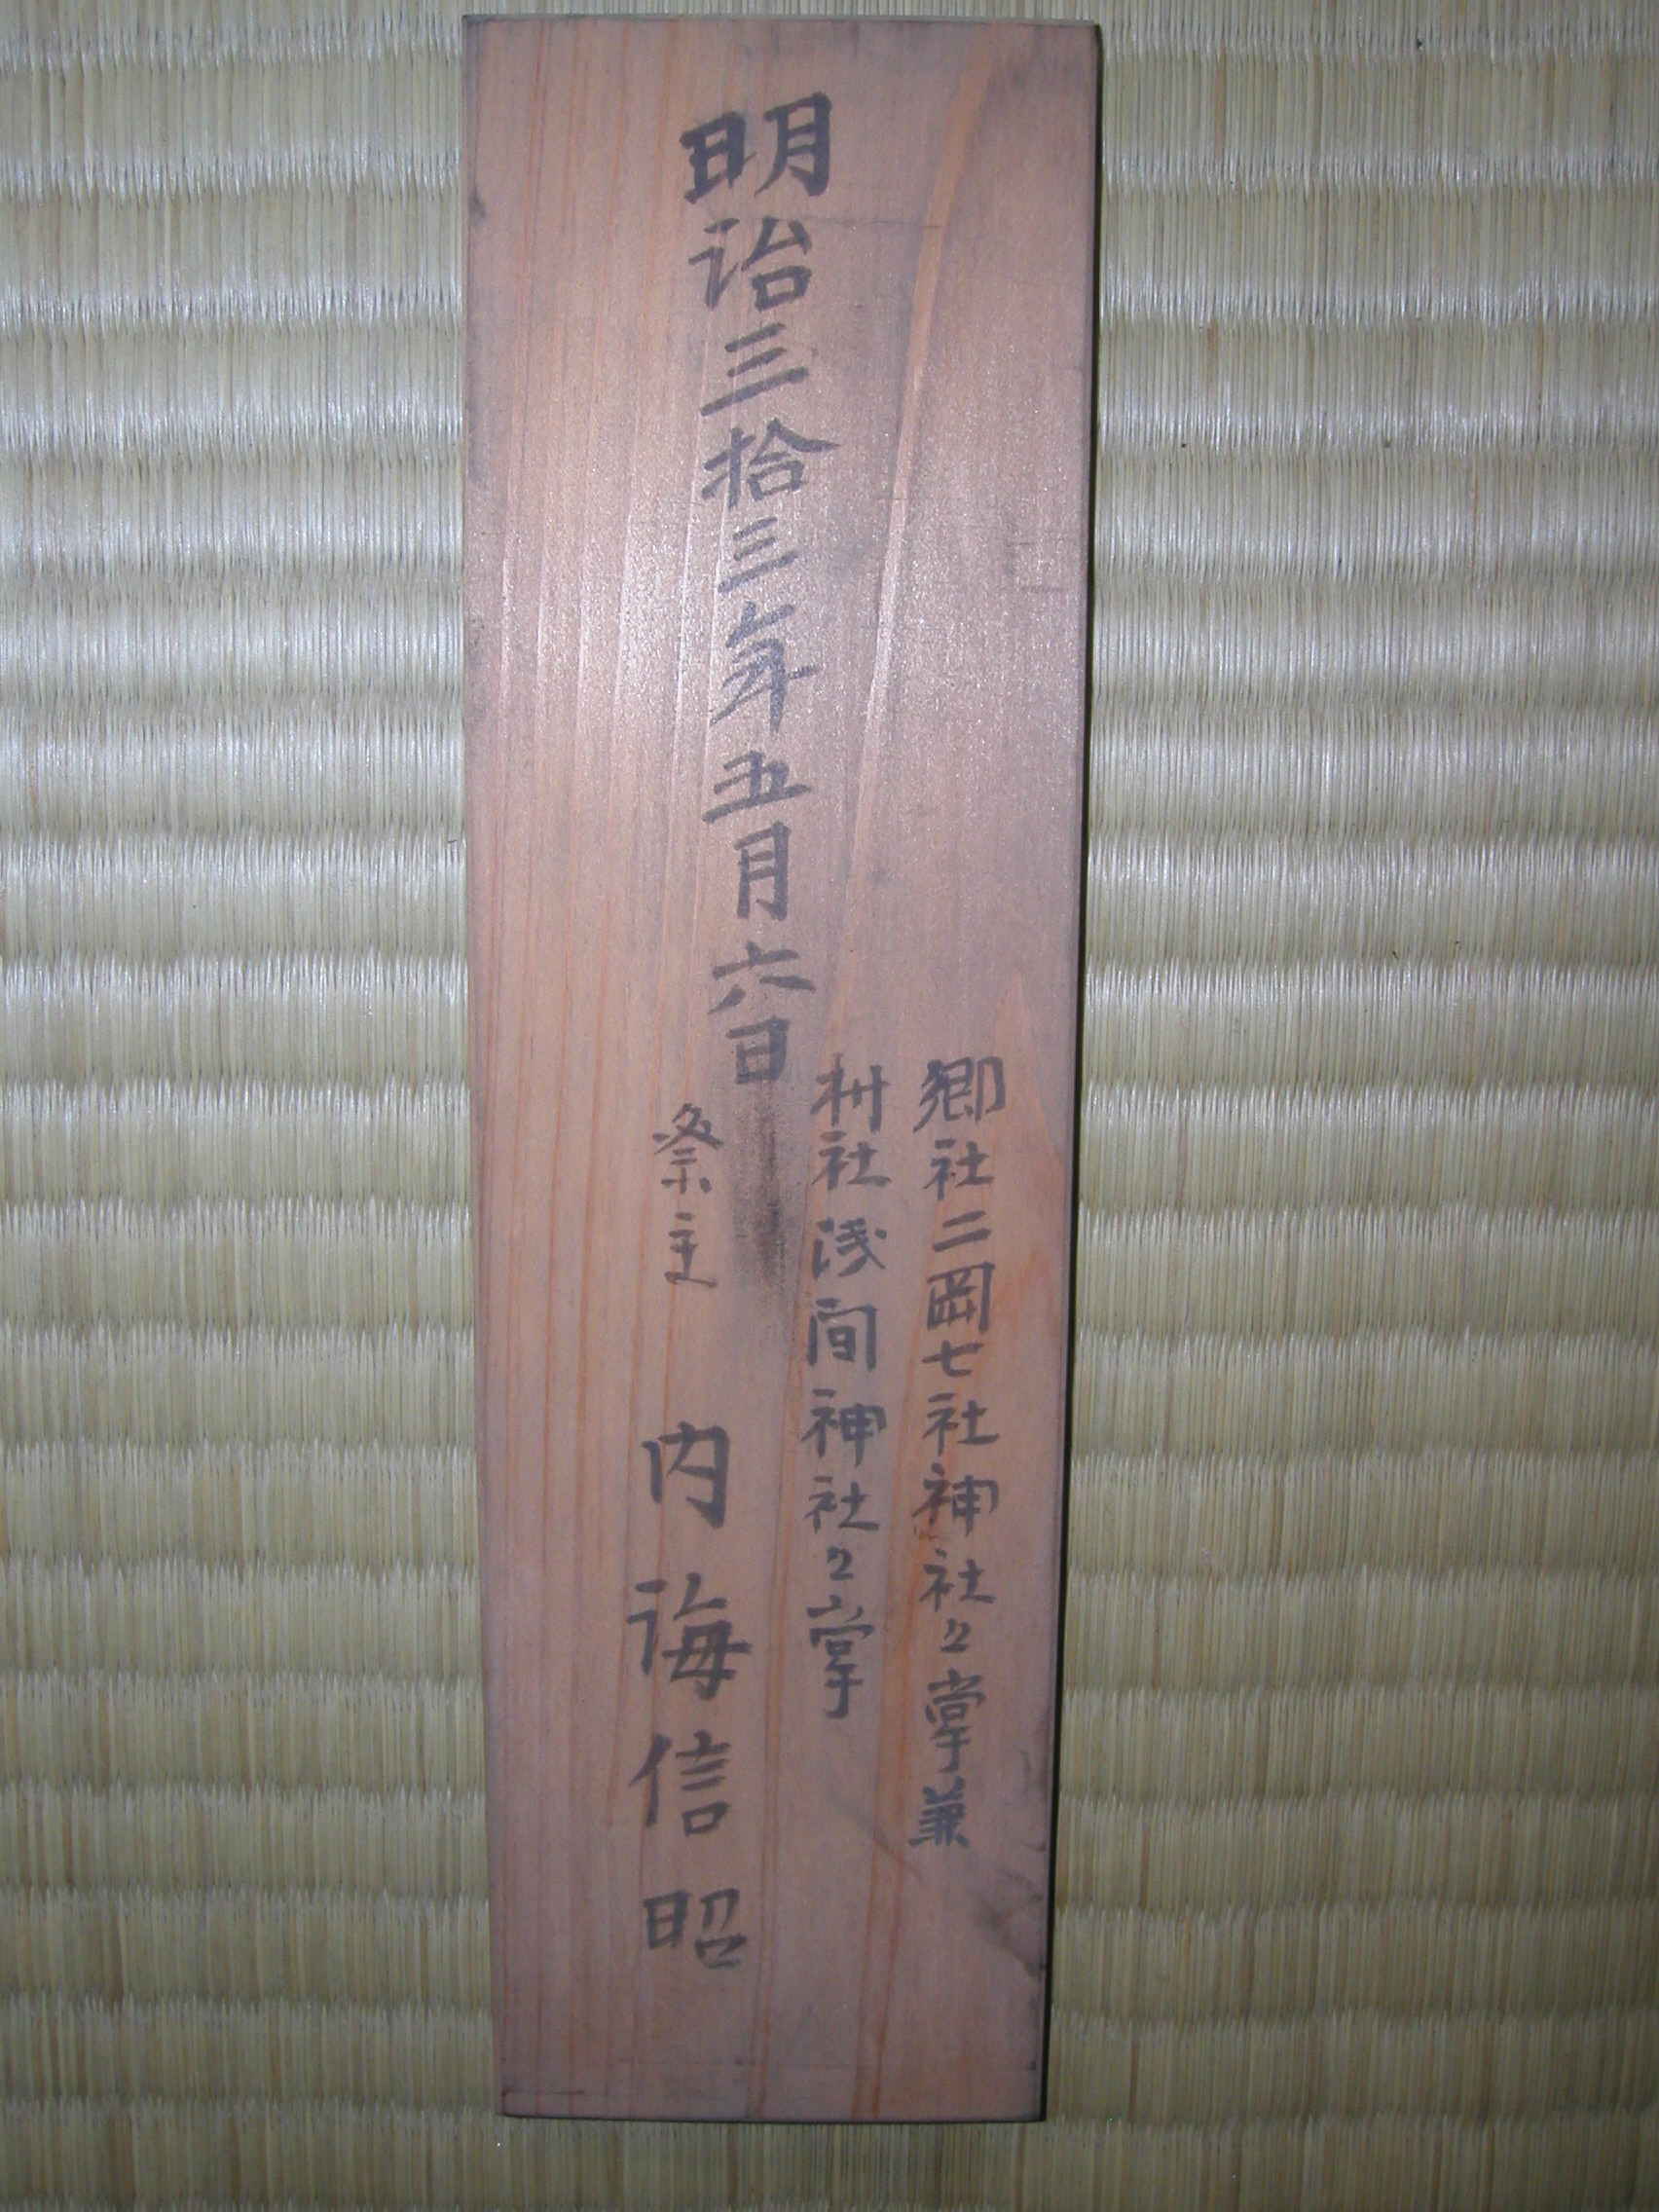 明治三拾三年五月六日
郷社二岡七社神社々掌兼
村社浅間神社々掌
祭主 内海信昭